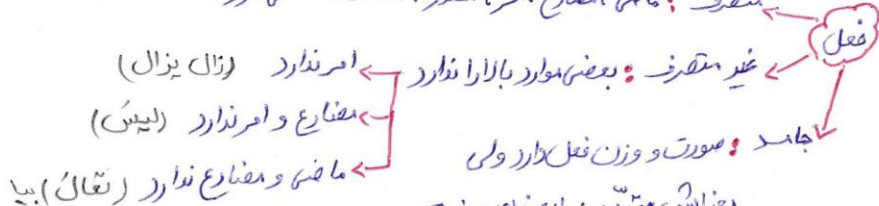 متصرف : ماضی مضارع
فعل
غیر متصرف : بعضی موارد بالا را ندارد
امر ندارد (زال یزال)
مضارع و امر ندارد (لیسَ)
ماضی و مضارع ندارد (تعالَ) بیا
جامد : صورت و وزن فعل دارد ولی